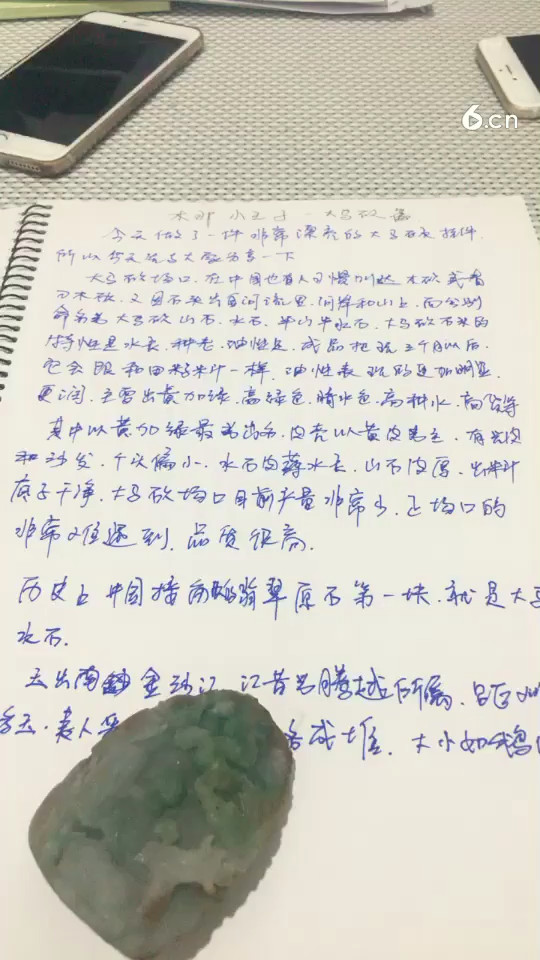 6.cn
木那 小王子 - 大马砍
今天做了一块非常漂亮的大马砍挂件
所以今天就与大家分享一下
大马砍场口,在中国也有人习惯叫达木砍或者
刀木砍,又因石头出自河流里,河岸和山上,而分别
命名为大马砍山石,水石,半山半水石,大马砍石头的
特性是水长,种老,油性足,成品把玩三个月以后
它会跟和田籽料一样,油性表现的更加明显
更润,主要出黄加绿,高绿色,晴水色,高种水,高货等
其中以黄加绿最为出名,皮壳以黄皮为主,有
和沙发,个头偏小,水石皮薄水长,山石皮厚,出料
底子干净,大马砍场口目前产量非常少,正场口的
非常难遇到,品质很高.
历史上中国接触的翡翠原石第一块,就是大马
水石.
玉出南 金沙江,江昔为腾越所属,
玉,
成堆,大小如鹅